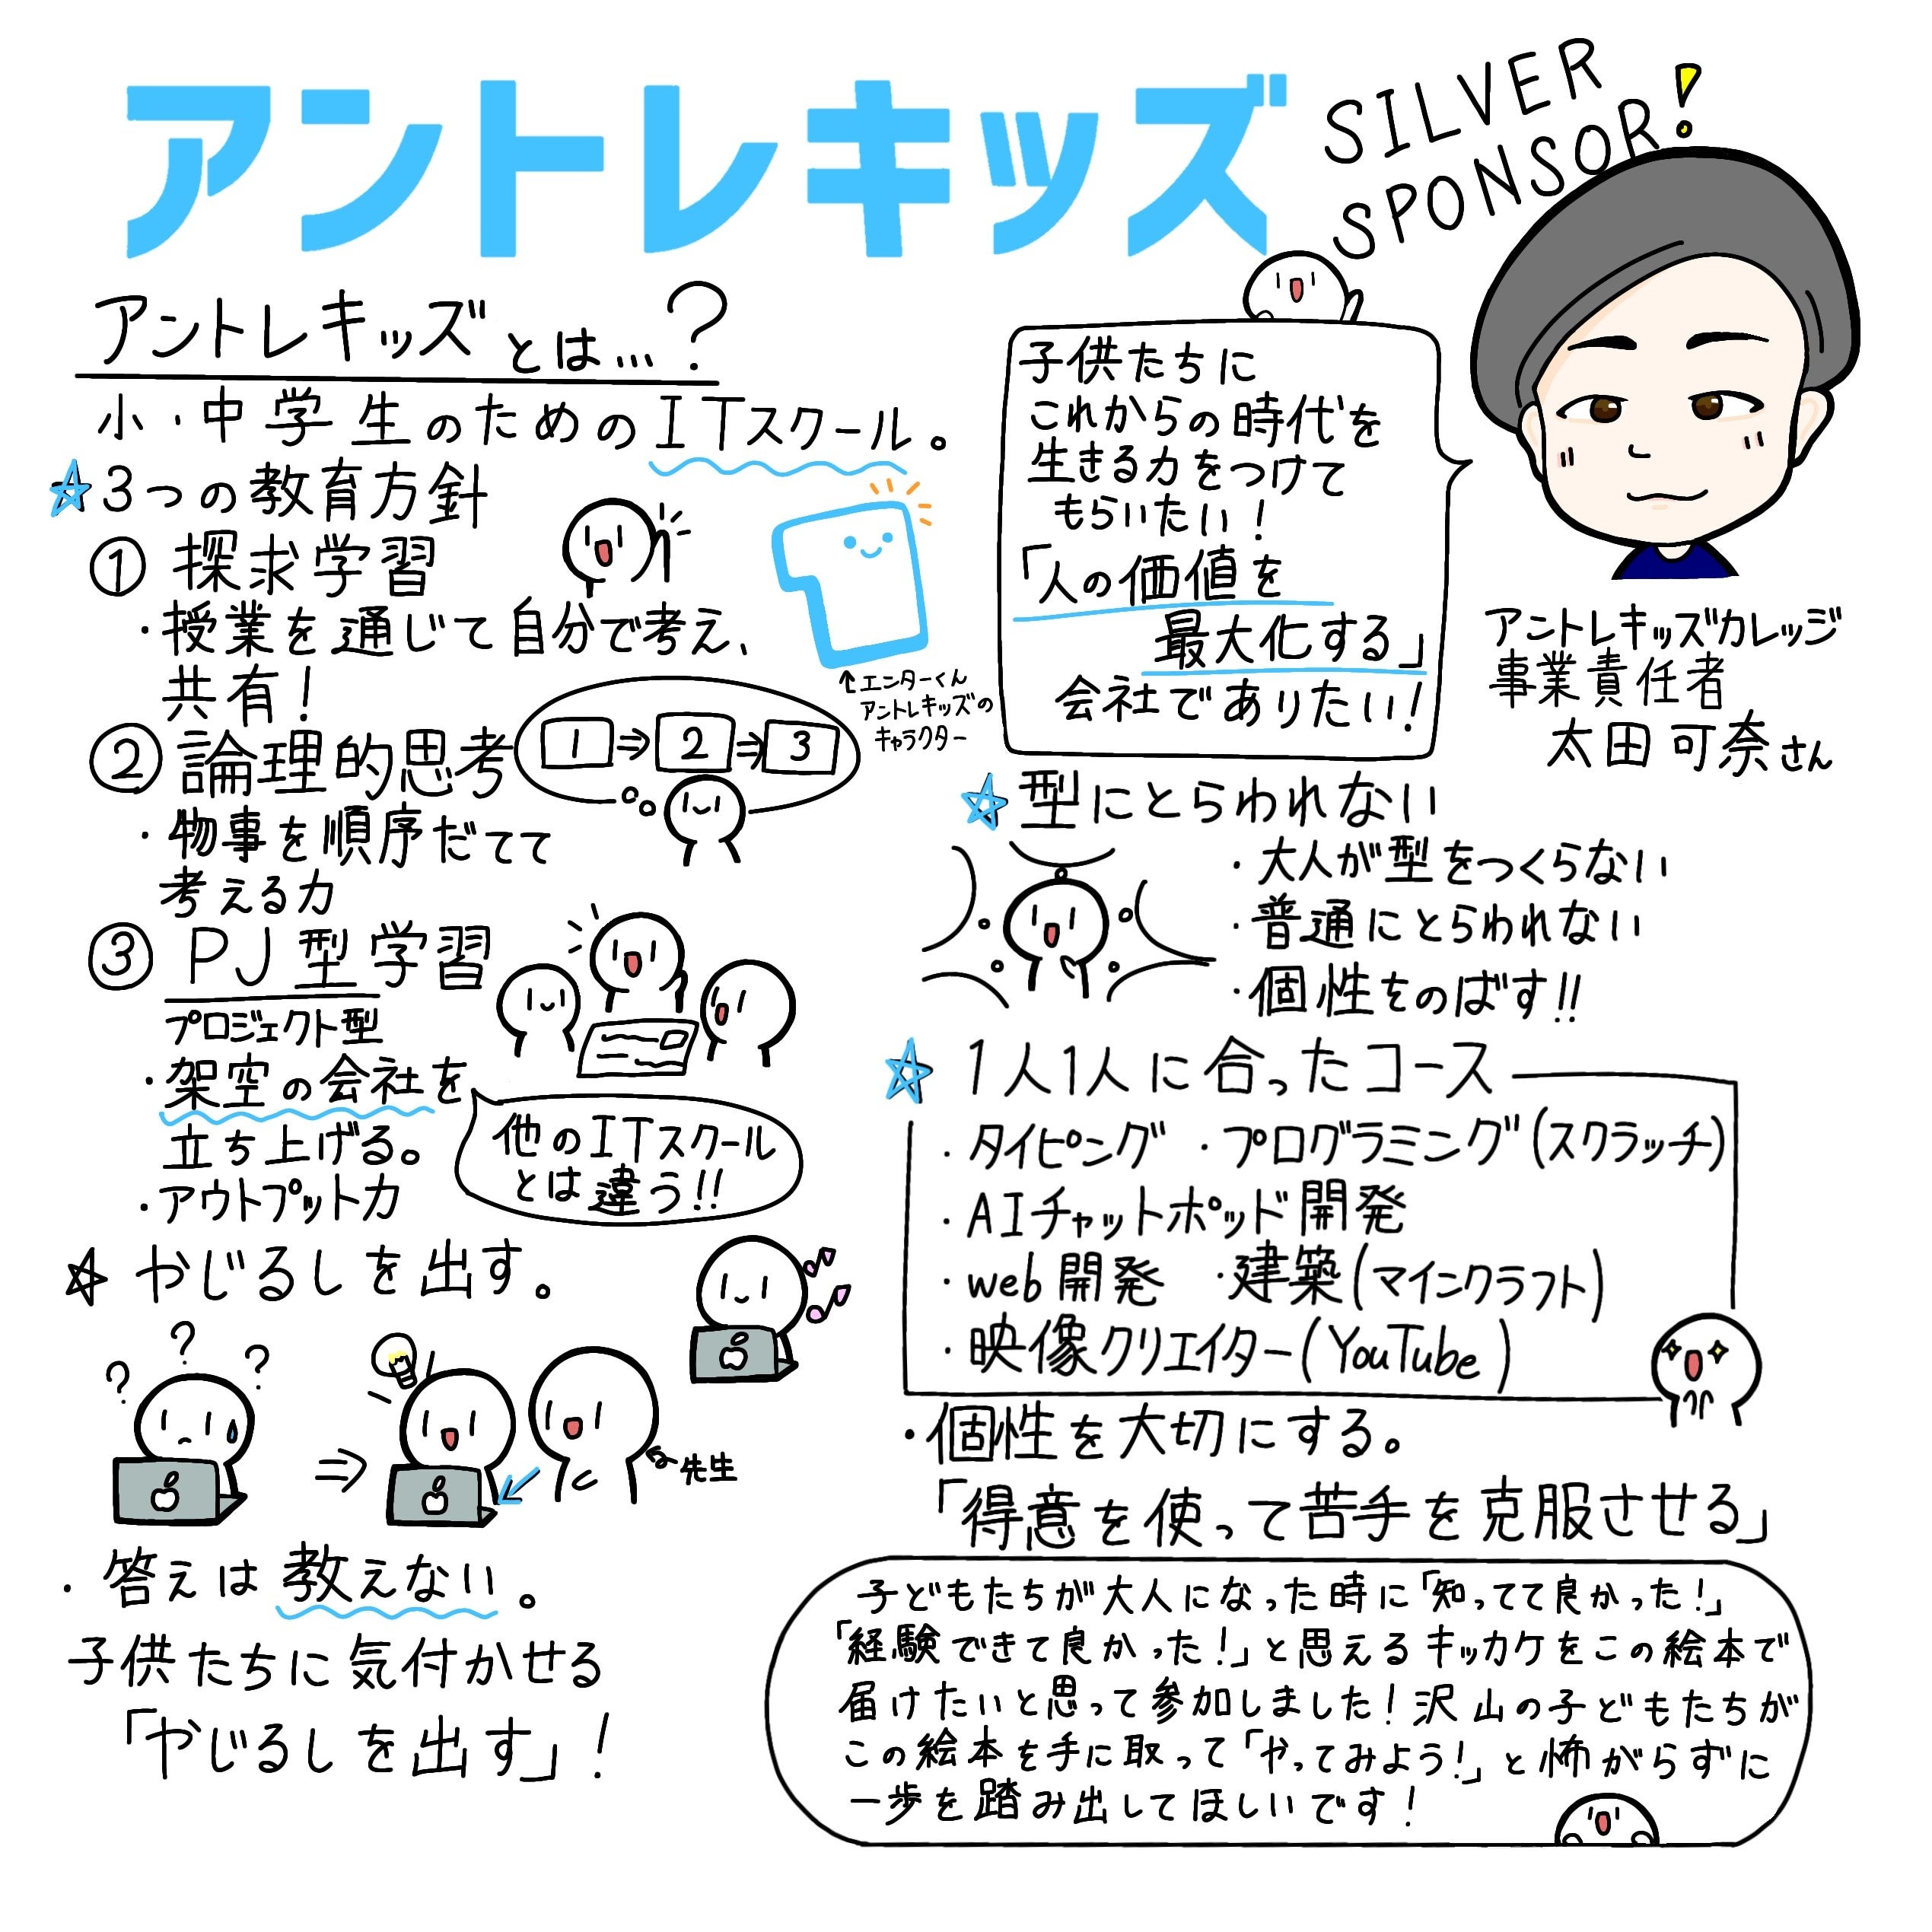 アントレキッズ
SILVER
SPONSOR!
アントレキッズとは…?
小・中学生のためのITスクール。
☆3つの教育方針
① 探求学習
・授業を通じて自分で考え、
共有!
↑エンターくん
アントレキッズの
キャラクター
② 論理的思考
1⇒2⇒3
・物事を順序だてて
考える力
③ PJ型学習
プロジェクト型
・架空の会社を
立ち上げる。
・アウトプット力
他のITスクール
とは違う!!
☆やじるしを出す。
? ? ?
⇒
先生
・答えは教えない。
子供たちに気付かせる
「やじるしを出す」!
子供たちに
これからの時代を
生きる力をつけて
もらいたい!
「人の価値を
最大化する」
会社でありたい!
アントレキッズカレッジ
事業責任者
太田可奈さん
☆型にとらわれない
・大人が型をつくらない
・普通にとらわれない
・個性をのばす!!
☆1人1人に合ったコース
・タイピング ・プログラミング(スクラッチ)
・AIチャットポッド開発
・web開発 ・建築(マインクラフト)
・映像クリエイター(YouTube)
・個性を大切にする。
「得意を使って苦手を克服させる」
子どもたちが大人になった時に「知ってて良かった!」
「経験できて良かった!」と思えるキッカケをこの絵本で
届けたいと思って参加しました!沢山の子どもたちが
この絵本を手に取って「やってみよう!」と怖がらずに
一歩を踏み出してほしいです!